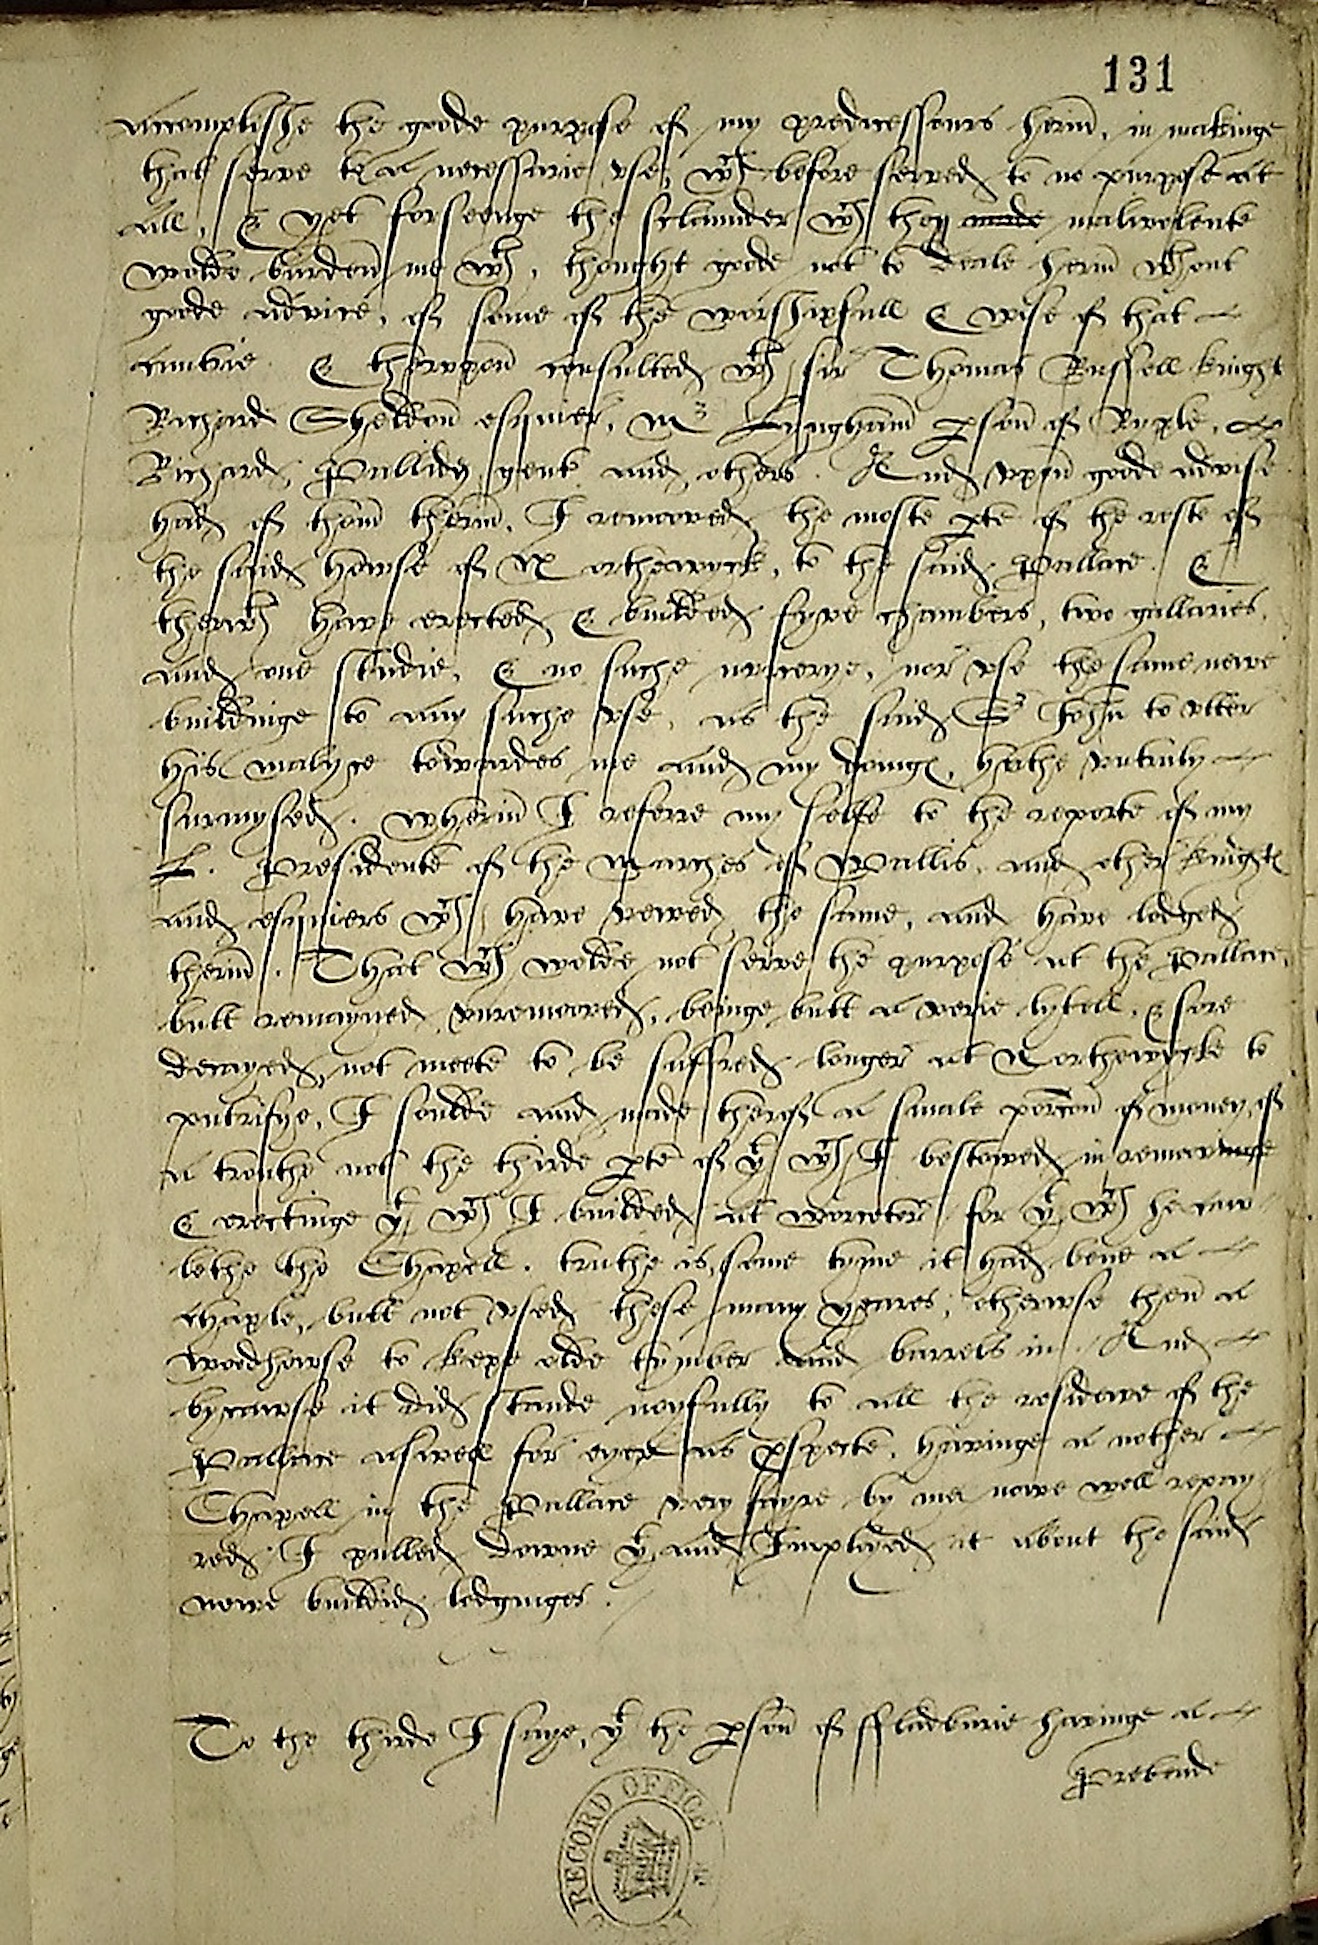 131
accomplishe the goode purpose of my predicessours herin, in makinge
that serve to a necessarie vse, wch before served to no purpose at
all, & yet forseenge the sclaunder wch they made malivolente
wolde burden me wth, thought goode not to deale herin wthout
goode advice, of some of the worshipfull & wise of that
cuntrie. & thervpon consulted wth sir Thomas Russell knight
Richard Sheldon esquier, Mr Lyngham pson of Ryple,
Richard Pullidy gent and others. And vpon goode advise
had of them therin, I removed the moste pte of the reste of
the said howse of Northewyck, to the said Pallace. &
therwth have erected & builded fyve chambers, two gallaries,
and one studie, & no suche nurcerye, nor vse the same newe
buildinge to any suche vse, as the said Sr John to vtter
his malyce towardes me and my doings, hathe vntruly
surmysed. Wherin I referre my selfe to the reporte of my
L. Presidente of the Marches of Wallis, and other knights
and esquiers wch have vewed the same, and have lodged
therin. That wch wolde not serve the purpose at the Pallace,
butt remayned vnremoved, beinge butt a verie lytell, & sore
decayed, not meete to be suffred longer at Northewycke to
putrifye, I soulde and made therof a smale porcon of money, of
a trouthe not the thirde pte of yt wch I bestowed in removinge
& erectinge yt wch I builded at Worceter. for yt wch he caw
lethe the Chapell. truthe is, some tyme it had bene a
chaple, butt not vsed these many yeares, otherwse then a
wodhowse to kepe olde tymber and barrels in. And
bycawse it did stande noyfully to all the residewe of the
Pallace aswell for eyer as pspecte, havinge a nother
Chapell in the Pallace very fayre by me nowe well repay
red. I pulled downe yt, and Imployed it about the said
newe buildid lodginges.
To the thirde I saye, yt the pson of ffladburie havinge a
Prebende
RECORD OFFICE